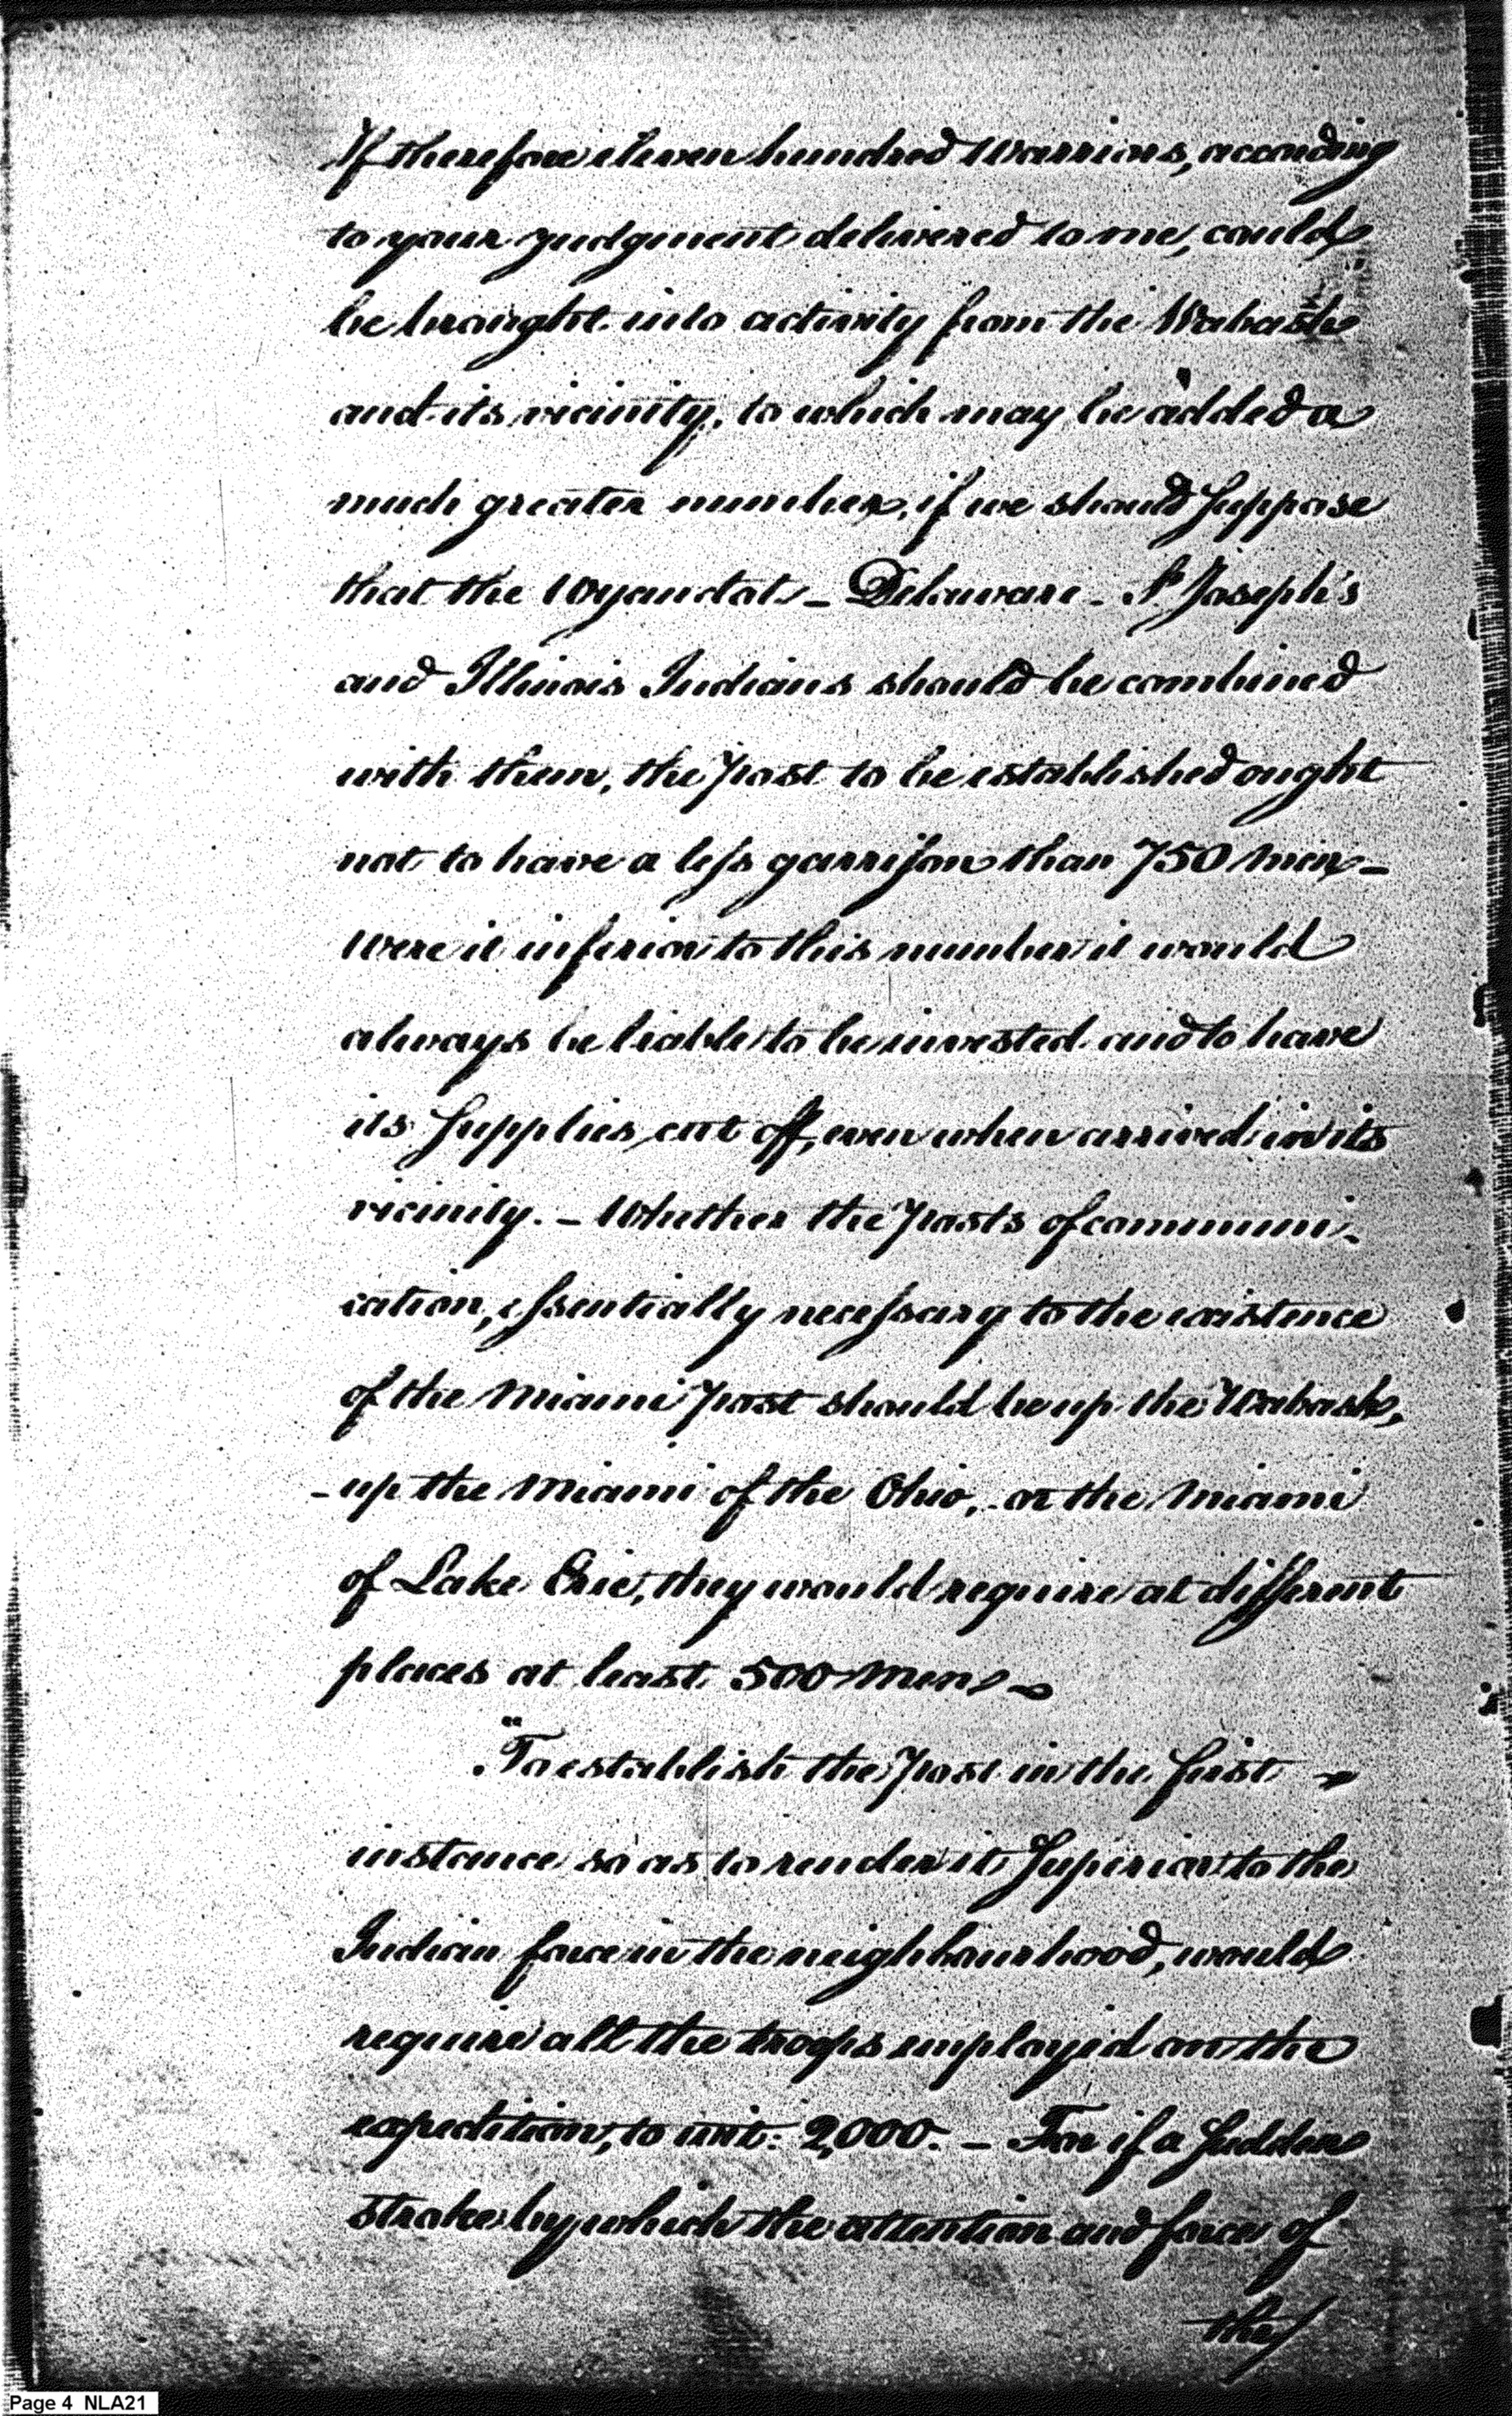 If therefore eleven hundred Warriors, according
to your judgment delivered to me, could
be brought into activity from the Wabash
and its vicinity, to which may be added a
much greater number, if we should suppose
that the Wyandot - Delaware - St Joseph's
and Illinois Indians should be combined
with them, the post to be established ought
not to have a less garrison than 750 men -
Were it inferior to this number it would
always be liable to be invested and to have
its supplies cut off, even when arrived in its
vicinity. - Whether the posts of communi-
cation, essentially necessary to the existence
of the Miami post should be up the Wabash,
- up the Miami of the Ohio, or the Miami
of Lake Erie, they would require at different
places at least 500 men -
"To establish the post in the first
instance so as to render it superior to the
Indian force in the neighbourhood, would
require all the troops employed on the
expedition, to wit: 2,000. - For if a sudden
stroke by which the attention and force of
the
Page 4 NLA21